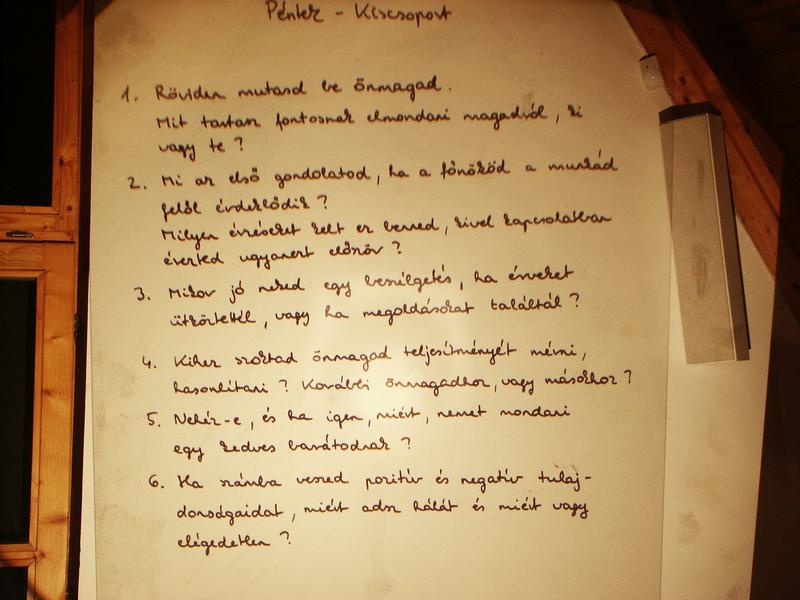 Péntek - Kiscsoport
1. Röviden mutasd be önmagad.
Mit tartasz fontosnak elmondani magadról, ki
vagy te?
2. Mi az első gondolatod, ha a főnököd a munkád
felől érdeklődik?
Milyen érzéseket kelt ez benned, kivel kapcsolatban
érezted ugyanezt először?
3. Mikor jó neked egy beszélgetés, ha érveket
ütköztettél, vagy ha megoldásokat találtál?
4. Kihez szoktad önmagad teljesítményét mérni,
hasonlítani? Korábbi önmagadhoz, vagy másokhoz?
5. Nehéz-e, és ha igen, miért, nemet mondani
egy kedves barátodnak?
6. Ha számba veszed pozitív és negatív tulaj-
donságaidat, miért adsz hálát és miért vagy
elégedetlen?